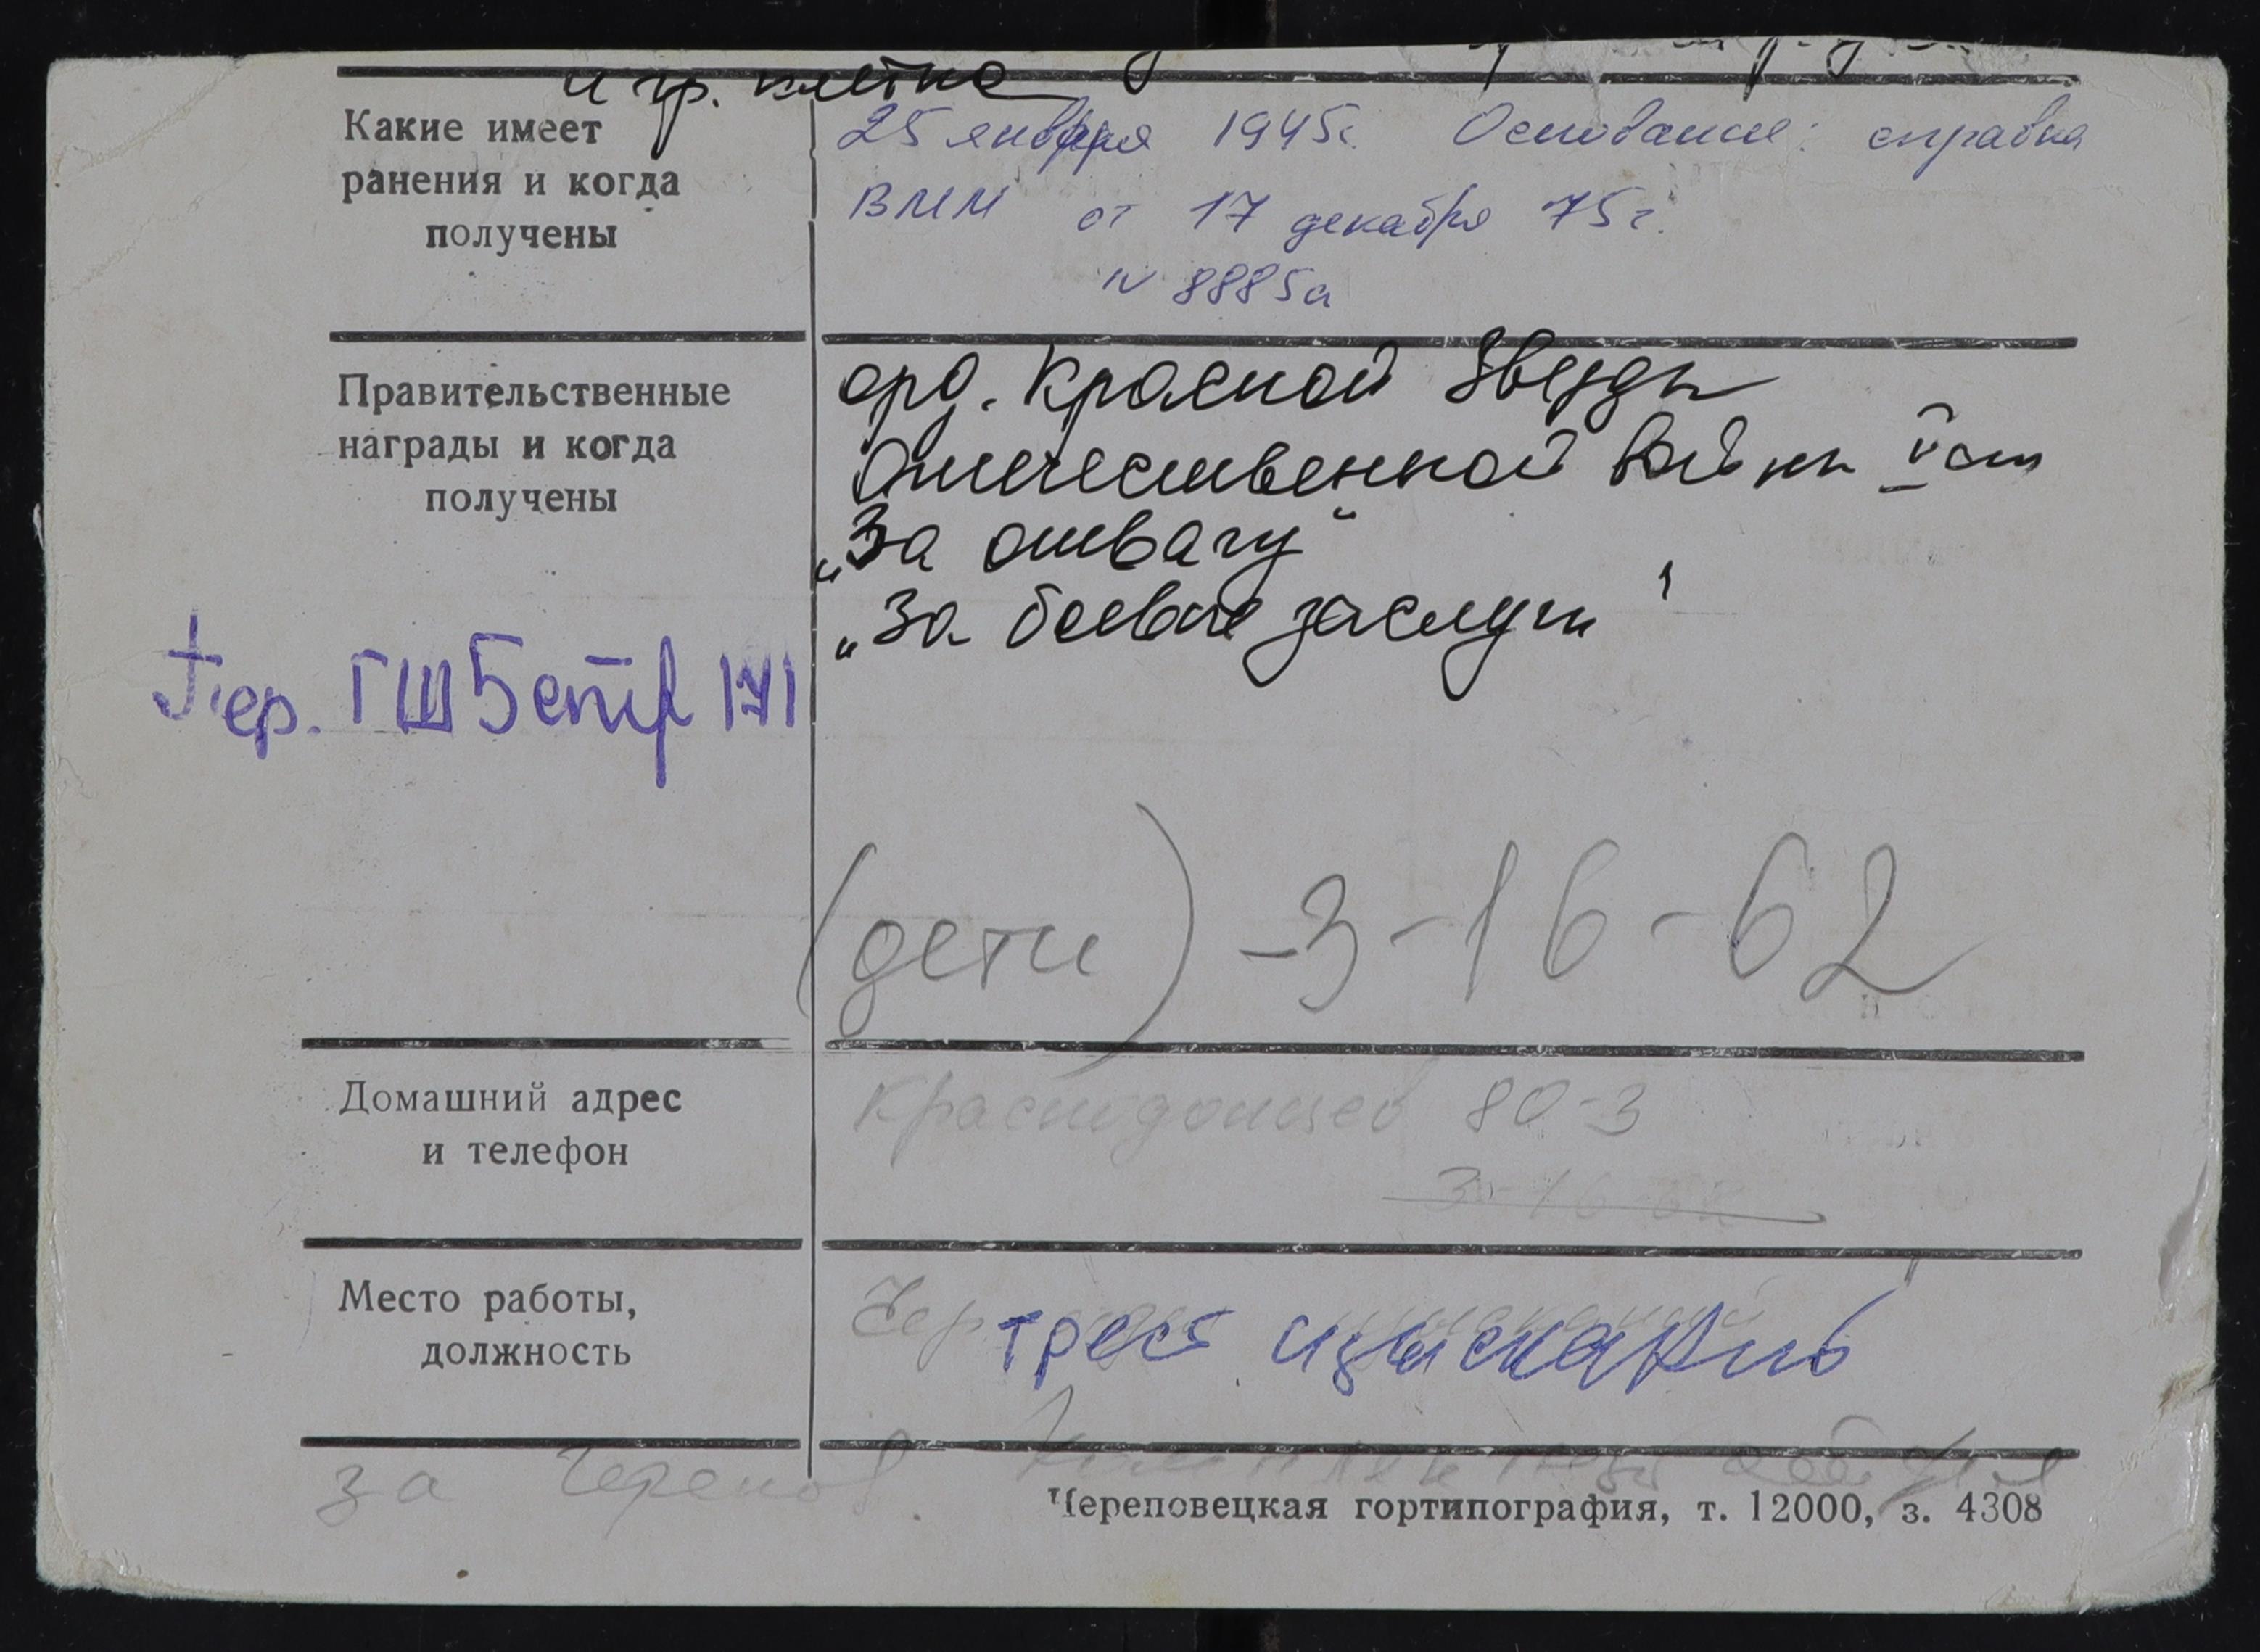 и гр. клетка
Какие имеет
ранения и когда
получены
25 января 1945г. Основание: справка
ВММ от 17 декабря 75г.
N 8885а
Правительственные
награды и когда
получены
орд. Красной Звезды
Отечественной войны II ст
„За отвагу"
„За боевые заслуги"
тер. ГШ 5 171
(дети) - 3-16-62
Домашний адрес
и телефон
Краснодонцев 80-3
3-16-62
Место работы,
должность
трест изысканий
за Черепов.
Череповецкая гортипография, т. 12000, з. 4308